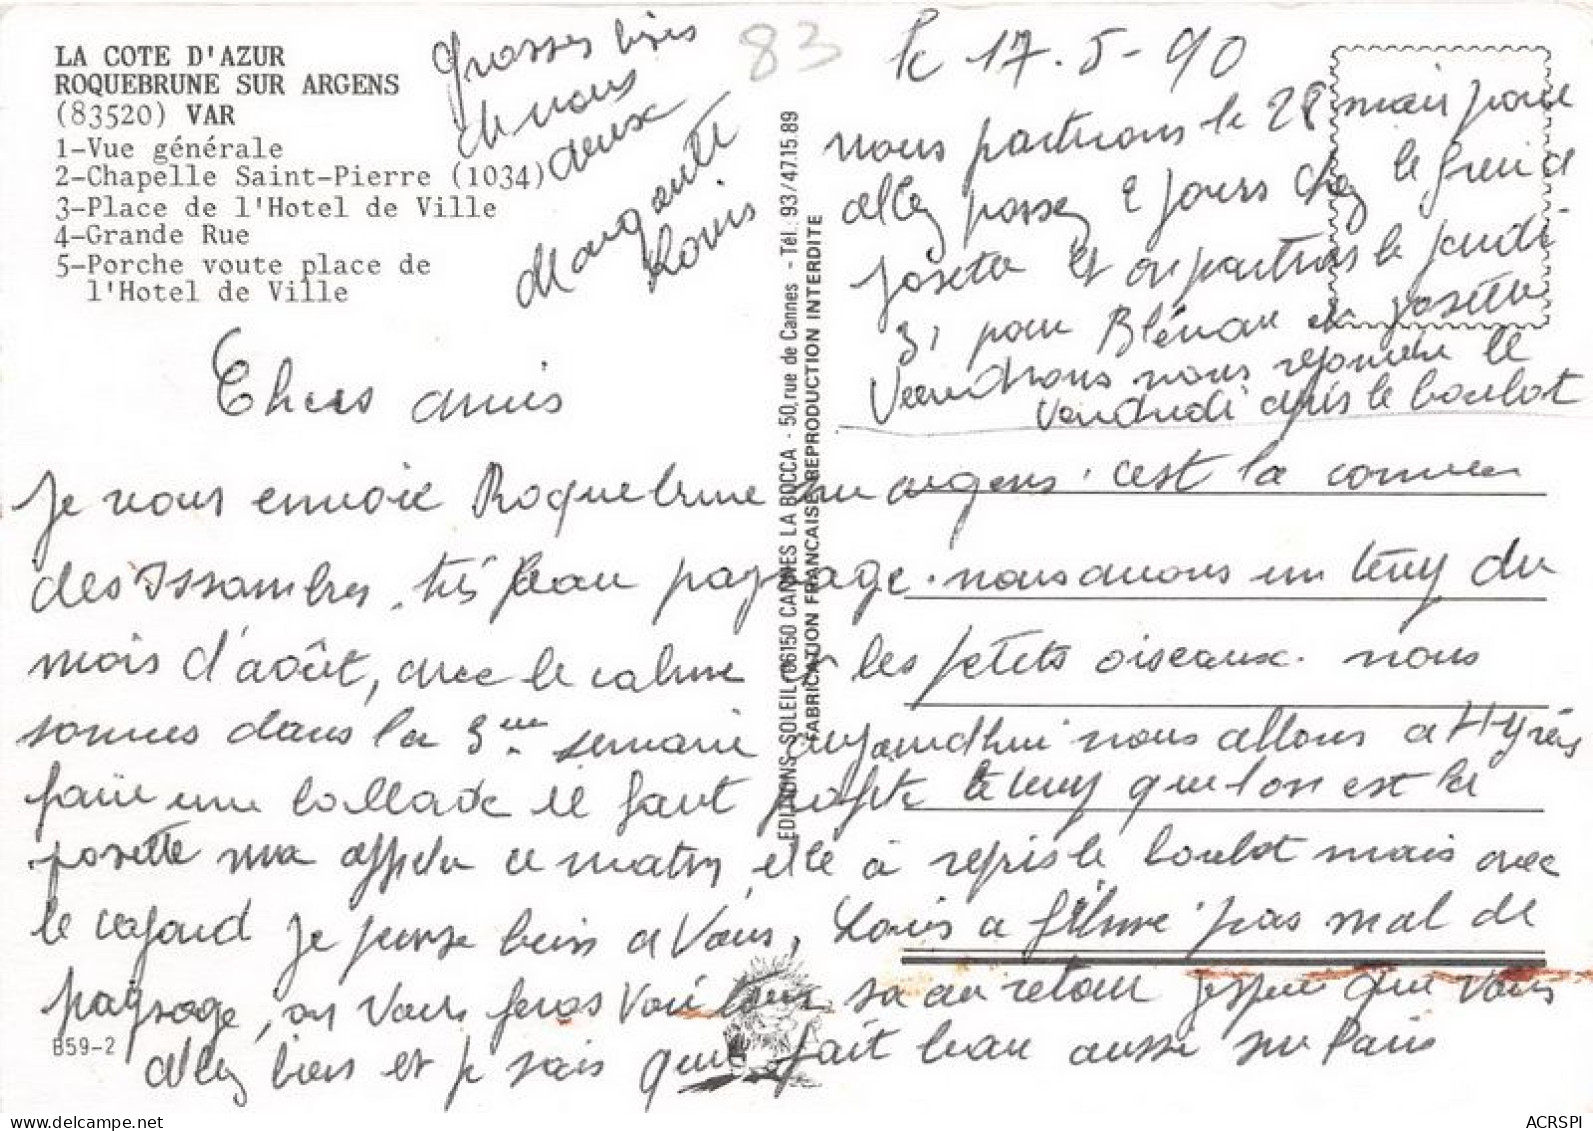 LA COTE D'AZUR
ROQUEBRUNE SUR ARGENS
(83520) VAR
1-Vue générale
2-Chapelle Saint-Pierre (1034)
3-Place de l'Hotel de Ville
4-Grande Rue
5-Porche voute place de
l'Hotel de Ville
Grosses bises
de nous
deux
Marguerite
Louis
83
le 17.5-90
nous partirons le 28 mai pour
allez passez 2 jours chez le
Josette et on partiras le jeudi
31 pour et Josette
Viendrons nous rejoindre le
Vendredi après le boulot
Chers amis
Je vous envoie Roquebrune sur argens. c'est la
des Issambres, très beau paysage. nous avons un temp du
mois d'août, avec le calme les petits oiseaux. nous
sommes dans la 3eme semaine aujourdhui nous allons a Hyères
faire une ballade il faut profite le temp que l'on est la
Josette ma appeler ce matin, elle à repris le boulot mais avec
le cafard je pense bien a Vous, Louis a filmé pas mal de
paysage, on vous feras voir tous sa au retour j'espère que vous
allez bien et je sais que fait beau aussi sur Paris
EDITIONS SOLEIL 06150 CANNES LA BOCCA - 50, rue de Cannes - Tél.: 93/47.15.89
FABRICATION FRANCAISE REPRODUCTION INTERDITE
B59-2
delcampe.net
ACRSPI